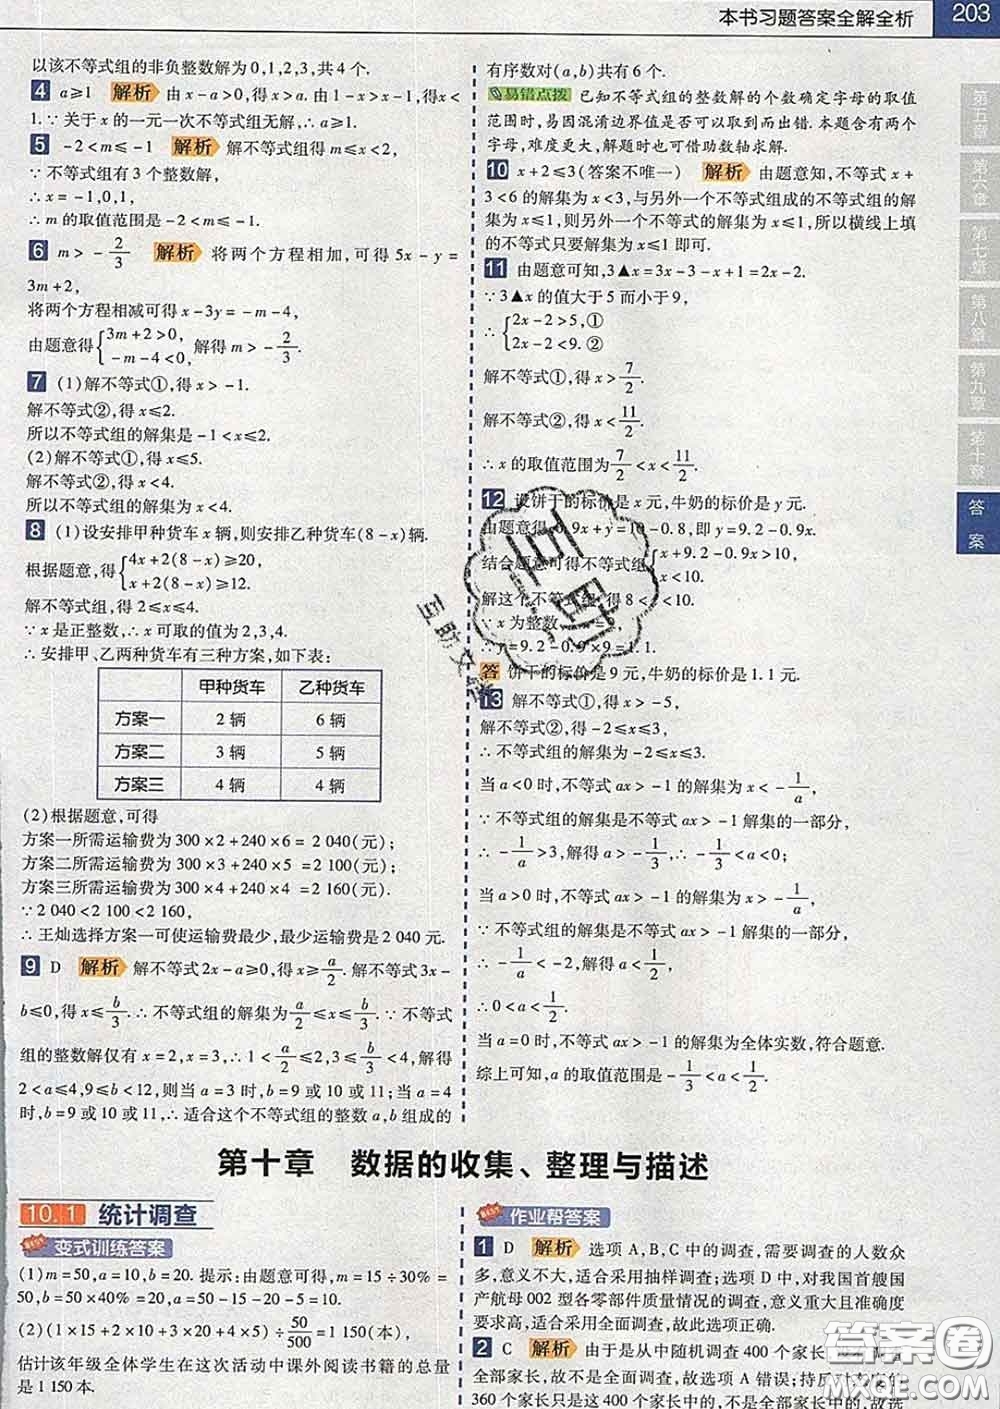 本书习题答案全解全析 203
以该不等式组的非负整数解为0,1,2,3,共4个.
4 a≥1 解析 由x-a>0,得x>a.由1-x>x-1,得x<
1.∵关于x的一元一次不等式组无解,∴a≥1.
5 -2<m≤-1 解析 解不等式组得m≤x<2,
∵不等式组有3个整数解,
∴x=-1,0,1,
∴m的取值范围是-2<m≤-1.
6 m>-2/3 解析 将两个方程相加,可得5x-y=
3m+2,
将两个方程相减可得x-3y=-m-4,
由题意得{3m+2>0, -m-4<0, 解得m>-2/3.
7 (1)解不等式①,得x>-1.
解不等式②,得x≤2.
所以不等式组的解集是-1<x≤2.
(2)解不等式①,得x≤5.
解不等式②,得x<4.
所以不等式组的解集为x<4.
8 (1)设安排甲种货车x辆,则安排乙种货车(8-x)辆.
根据题意,得{4x+2(8-x)≥20, x+2(8-x)≥12,
解不等式组,得2≤x≤4.
∵x是正整数,∴x可取的值为2,3,4.
∴安排甲、乙两种货车有三种方案,如下表:
甲种货车 乙种货车
方案一 2辆 6辆
方案二 3辆 5辆
方案三 4辆 4辆
(2)根据题意,可得
方案一所需运输费为300×2+240×6=2 040(元);
方案二所需运输费为300×3+240×5=2 100(元);
方案三所需运输费为300×4+240×4=2 160(元).
∵2 040<2 100<2 160,
∴王灿选择方案一可使运输费最少,最少运输费是2 040元.
9 D 解析 解不等式2x-a≥0,得x≥a/2.解不等式3x-
b≤0,得x≤b/3.∴不等式组的解集为a/2≤x≤b/3.∵不等式
组的整数解仅有x=2,x=3,∴1<a/2≤2,3≤b/3<4,解得
2<a≤4,9≤b<12,则当a=3时,b=9或10或11;当a=4
时,b=9或10或11,∴适合这个不等式组的整数a,b组成的
有序数对(a,b)共有6个.
易错点拨 已知不等式组的整数解的个数确定字母的取值
范围时,易因混淆边界值是否可以取到而出错.本题含有两个
字母,难度更大,解题时也可借助数轴求解.
10 x+2≤3(答案不唯一) 解析 由题意知,不等式x+
3<6的解集为x<3,与另外一个不等式组成的不等式组的解
集为x≤1,则另外一个不等式的解集为x≤1,所以横线上填
的不等式只要解集为x≤1即可.
11 由题意可知,3▲x=3x-3-x+1=2x-2.
∵3▲x的值大于5而小于9,
∴{2x-2>5,① 2x-2<9.②
解不等式①,得x>7/2.
解不等式②,得x<11/2.
∴x的取值范围为7/2<x<11/2.
12 设饼干的标价是x元,牛奶的标价是y元.
由题意得,0.9x+y=10-0.8,即y=9.2-0.9x.
结合题意可得不等式组{x+9.2-0.9x>10, x<10.
解这个不等式组,得8<x<10.
∵x为整数
∴y=9.2-0.9×9=1.1.
答 饼干的标价是9元,牛奶的标价是1.1元.
13 解不等式①,得x>-5,
解不等式②,得-2≤x≤3,
∴不等式组的解集为-2≤x≤3.
当a<0时,不等式ax>-1的解集为x<-1/a,
∵不等式组的解集是不等式ax>-1解集的一部分,
∴-1/a>3,解得a>-1/3,∴-1/3<a<0;
当a>0时,不等式ax>-1的解集为x>-1/a,
∵不等式组的解集是不等式ax>-1解集的一部分,
∴-1/a<-2,解得a<1/2,
∴0<a<1/2.
当a=0时,不等式ax>-1的解集为全体实数,符合题意.
综上可知,a的取值范围是-1/3<a<1/2.
第五章
第六章
第七章
第八章
第九章
第十章
答案
第十章 数据的收集、整理与描述
10.1 统计调查
变式训练答案
(1)m=50,a=10,b=20.提示:由题意可得,m=15÷30%=
50,b=50×40%=20,a=50-15-20-5=10.
(2)(1×15+2×10+3×20+4×5)÷50/500=1 150(本),
估计该年级全体学生在这次活动中课外阅读书籍的总量
是1 150本.
作业帮答案
1 D 解析 选项A,B,C中的调查,需要调查的人数众
多,意义不大,适合采用抽样调查;选项D中,对我国首艘国
产航母002型各零部件质量情况的调查,意义重大且准确度
要求高,适合采用全面调查,故此选项正确.
2 C 解析 由于是从中随机调查400个家长
全部家长,不是全面调查,故选项A错误;持反对态度的
360个家长只是这400个家长中的,不是全部家长中的,故选
互助
互助文
答案圈
MXQE.COM